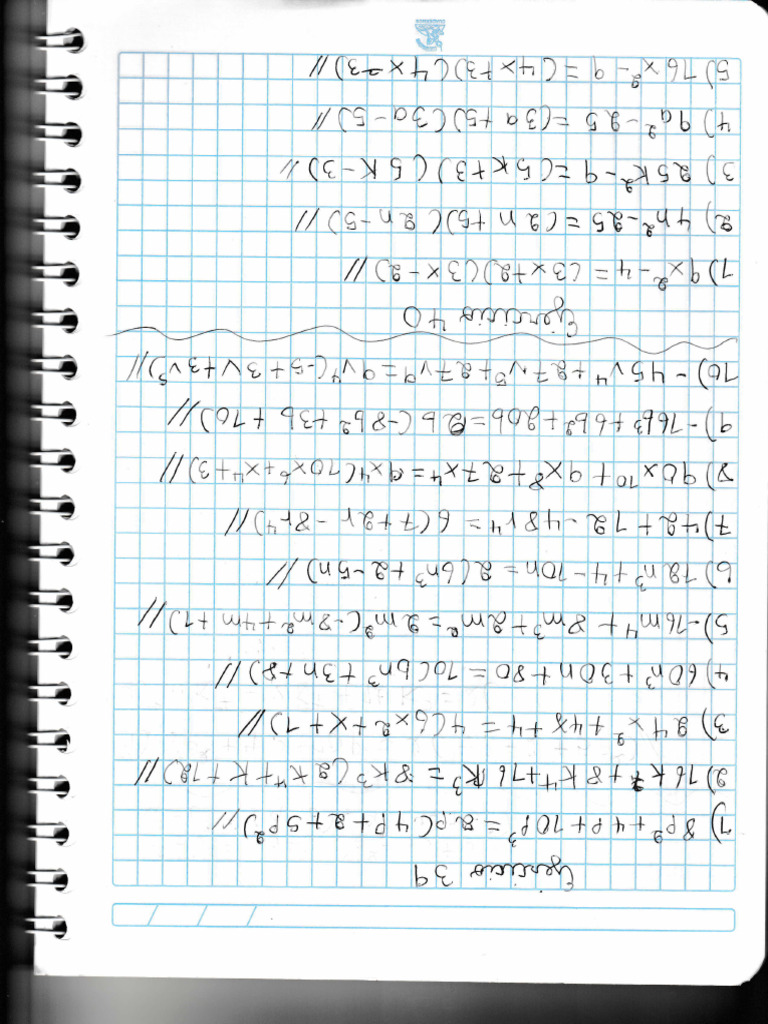 Ejercicio 39
1) 8p²+4p+10p³ = 2p(4p+2+5p²)//
2) 16k⁷+8k⁴+16k³ = 8k³(2k⁴+k+12)//
3) 24x²+4x+4 = 4(6x²+x+1)//
4) 60n³+30n+80 = 10(6n³+3n+8)//
5) -16m⁴+8m³+2m² = 2m²(-8m²+4m+1)//
6) 12n³+4-10n = 2(6n³+2-5n)//
7) 42+12-48r⁴ = 6(7+2r-8r⁴)//
8) 90x¹⁰+9x⁸+27x⁴ = 9x⁴(10x⁶+x⁴+3)//
9) -16b³+6b²+20b = 2b(-8b²+3b+10)//
10) -45v⁴+27v⁵+27v⁹ = 9v⁴(-5+3v+3v⁵)//
Ejercicio 40
1) 9x²-4 = (3x+2)(3x-2)//
2) 4n²-25 = (2n+5)(2n-5)//
3) 25k²-9 = (5k+3)(5k-3)//
4) 9a²-25 = (3a+5)(3a-5)//
5) 16x²-9 = (4x+3)(4x-3)//